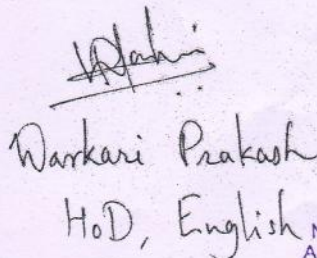 Warkari Prakash
HoD, English